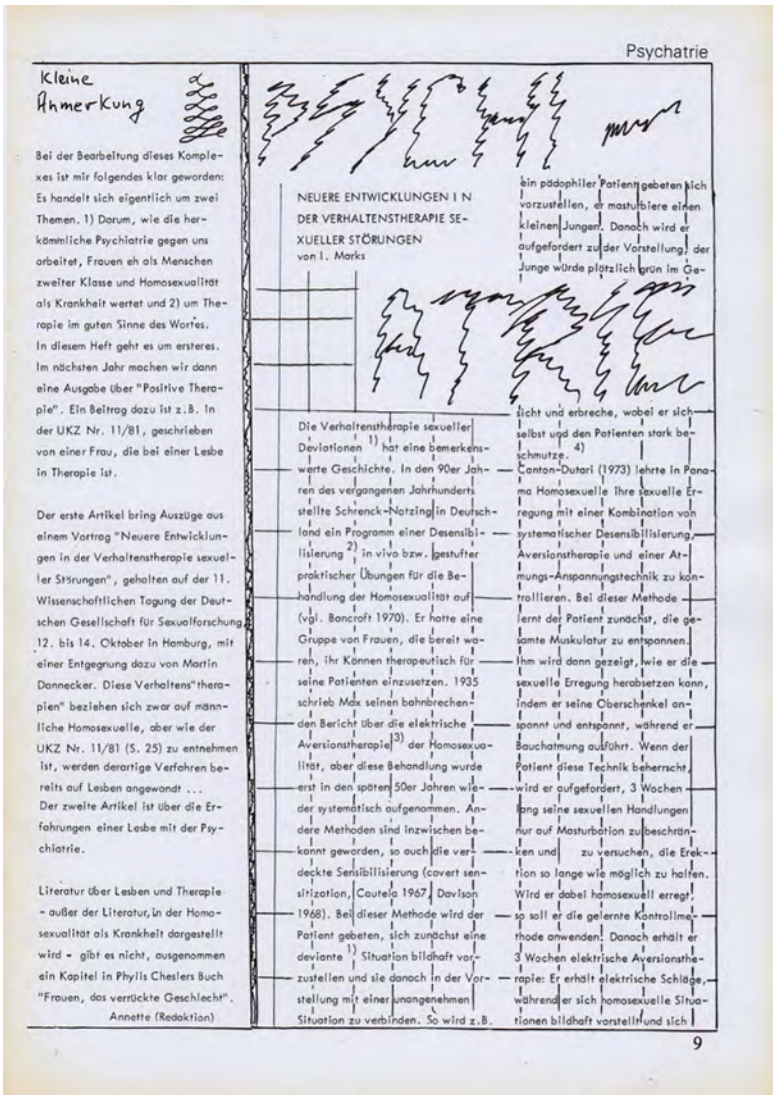 Psychatrie
Kleine
Anmerkung
Bei der Bearbeitung dieses Komple-
xes ist mir folgendes klar geworden:
Es handelt sich eigentlich um zwei
Themen. 1) Darum, wie die her-
kömmliche Psychiatrie gegen uns
arbeitet, Frauen eh als Menschen
zweiter Klasse und Homosexualität
als Krankheit wertet und 2) um The-
rapie im guten Sinne des Wortes.
In diesem Heft geht es um ersteres.
Im nächsten Jahr machen wir dann
eine Ausgabe über "Positive Thera-
pie". Ein Beitrag dazu ist z.B. in
der UKZ Nr. 11/81, geschrieben
von einer Frau, die bei einer Lesbe
in Therapie ist.
Der erste Artikel bring Auszüge aus
einem Vortrag "Neuere Entwicklun-
gen in der Verhaltenstherapie sexuel-
ler Störungen", gehalten auf der 11.
Wissenschaftlichen Tagung der Deut-
schen Gesellschaft für Sexualforschung,
12. bis 14. Oktober in Hamburg, mit
einer Entgegnung dazu von Martin
Dannecker. Diese Verhaltens"thera-
pien" beziehen sich zwar auf männ-
liche Homosexuelle, aber wie der
UKZ Nr. 11/81 (S. 25) zu entnehmen
ist, werden derartige Verfahren be-
reits auf Lesben angewandt ...
Der zweite Artikel ist über die Er-
fahrungen einer Lesbe mit der Psy-
chiatrie.
Literatur über Lesben und Therapie
- außer der Literatur, in der Homo-
sexualität als Krankheit dargestellt
wird - gibt es nicht, ausgenommen
ein Kapitel in Phylis Cheslers Buch
"Frauen, das verrückte Geschlecht".
Annette (Redaktion)
PSYCHI
ATRIE
NEUERE ENTWICKLUNGEN I N
DER VERHALTENSTHERAPIE SE-
XUELLER STÖRUNGEN
von I. Marks
Die Verhaltenstherapie sexueller
Deviationen 1) hat eine bemerkens-
werte Geschichte. In den 90er Jah-
ren des vergangenen Jahrhunderts
stellte Schrenck-Notzing in Deutsch-
land ein Programm einer Desensibi-
lisierung 2) in vivo bzw. gestufter
praktischer Übungen für die Be-
handlung der Homosexualität auf
(vgl. Bancroft 1970). Er hatte eine
Gruppe von Frauen, die bereit wa-
ren, ihr Können therapeutisch für
seine Patienten einzusetzen. 1935
schrieb Max seinen bahnbrechen-
den Bericht über die elektrische
Aversionstherapie 3) der Homosexua-
lität, aber diese Behandlung wurde
erst in den späten 50er Jahren wie-
der systematisch aufgenommen. An-
dere Methoden sind inzwischen be-
kannt geworden, so auch die ver-
deckte Sensibilisierung (covert sen-
sitization, Cautela 1967, Davison
1968). Bei dieser Methode wird der
Patient gebeten, sich zunächst eine
deviante 1) Situation bildhaft vor-
zustellen und sie danach in der Vor-
stellung mit einer unangenehmen
Situation zu verbinden. So wird z.B.
ein pädophiler Patient gebeten sich
vorzustellen, er masturbiere einen
kleinen Jungen. Danach wird er
aufgefordert zu der Vorstellung, der
Junge würde plötzlich grün im Ge-
sicht und erbreche, wobei er sich
selbst und den Patienten stark be-
schmutze. 4)
Canton-Dutari (1973) lehrte in Pana-
ma Homosexuelle ihre sexuelle Er-
regung mit einer Kombination von
systematischer Desensibilisierung,
Aversionstherapie und einer At-
mungs-Anspannungstechnik zu kon-
trollieren. Bei dieser Methode
lernt der Patient zunächst, die ge-
samte Muskulatur zu entspannen.
Ihm wird dann gezeigt, wie er die
sexuelle Erregung herabsetzen kann,
indem er seine Oberschenkel an-
spannt und entspannt, während er
Bauchatmung ausführt. Wenn der
Patient diese Technik beherrscht,
wird er aufgefordert, 3 Wochen
lang seine sexuellen Handlungen
nur auf Masturbation zu beschrän-
ken und zu versuchen, die Erek-
tion so lange wie möglich zu halten.
Wird er dabei homosexuell erregt,
so soll er die gelernte Kontrollme-
thode anwenden. Danach erhält er
3 Wochen elektrische Aversionsthe-
rapie: Er erhält elektrische Schläge,
während er sich homosexuelle Situa-
tionen bildhaft vorstellt und sich
9